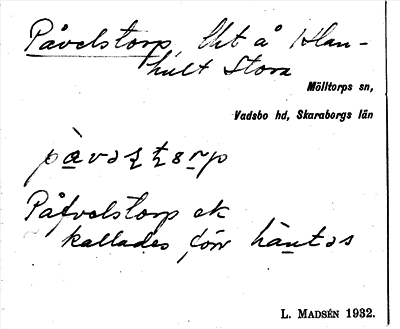 Påvelstorp, Utå Klan-
hult Stora
Mölltorps sn,
Vadsbo hd, Skaraborgs län
Påfvelstorp ek
kallades förr
L. MADSÉN 1932.